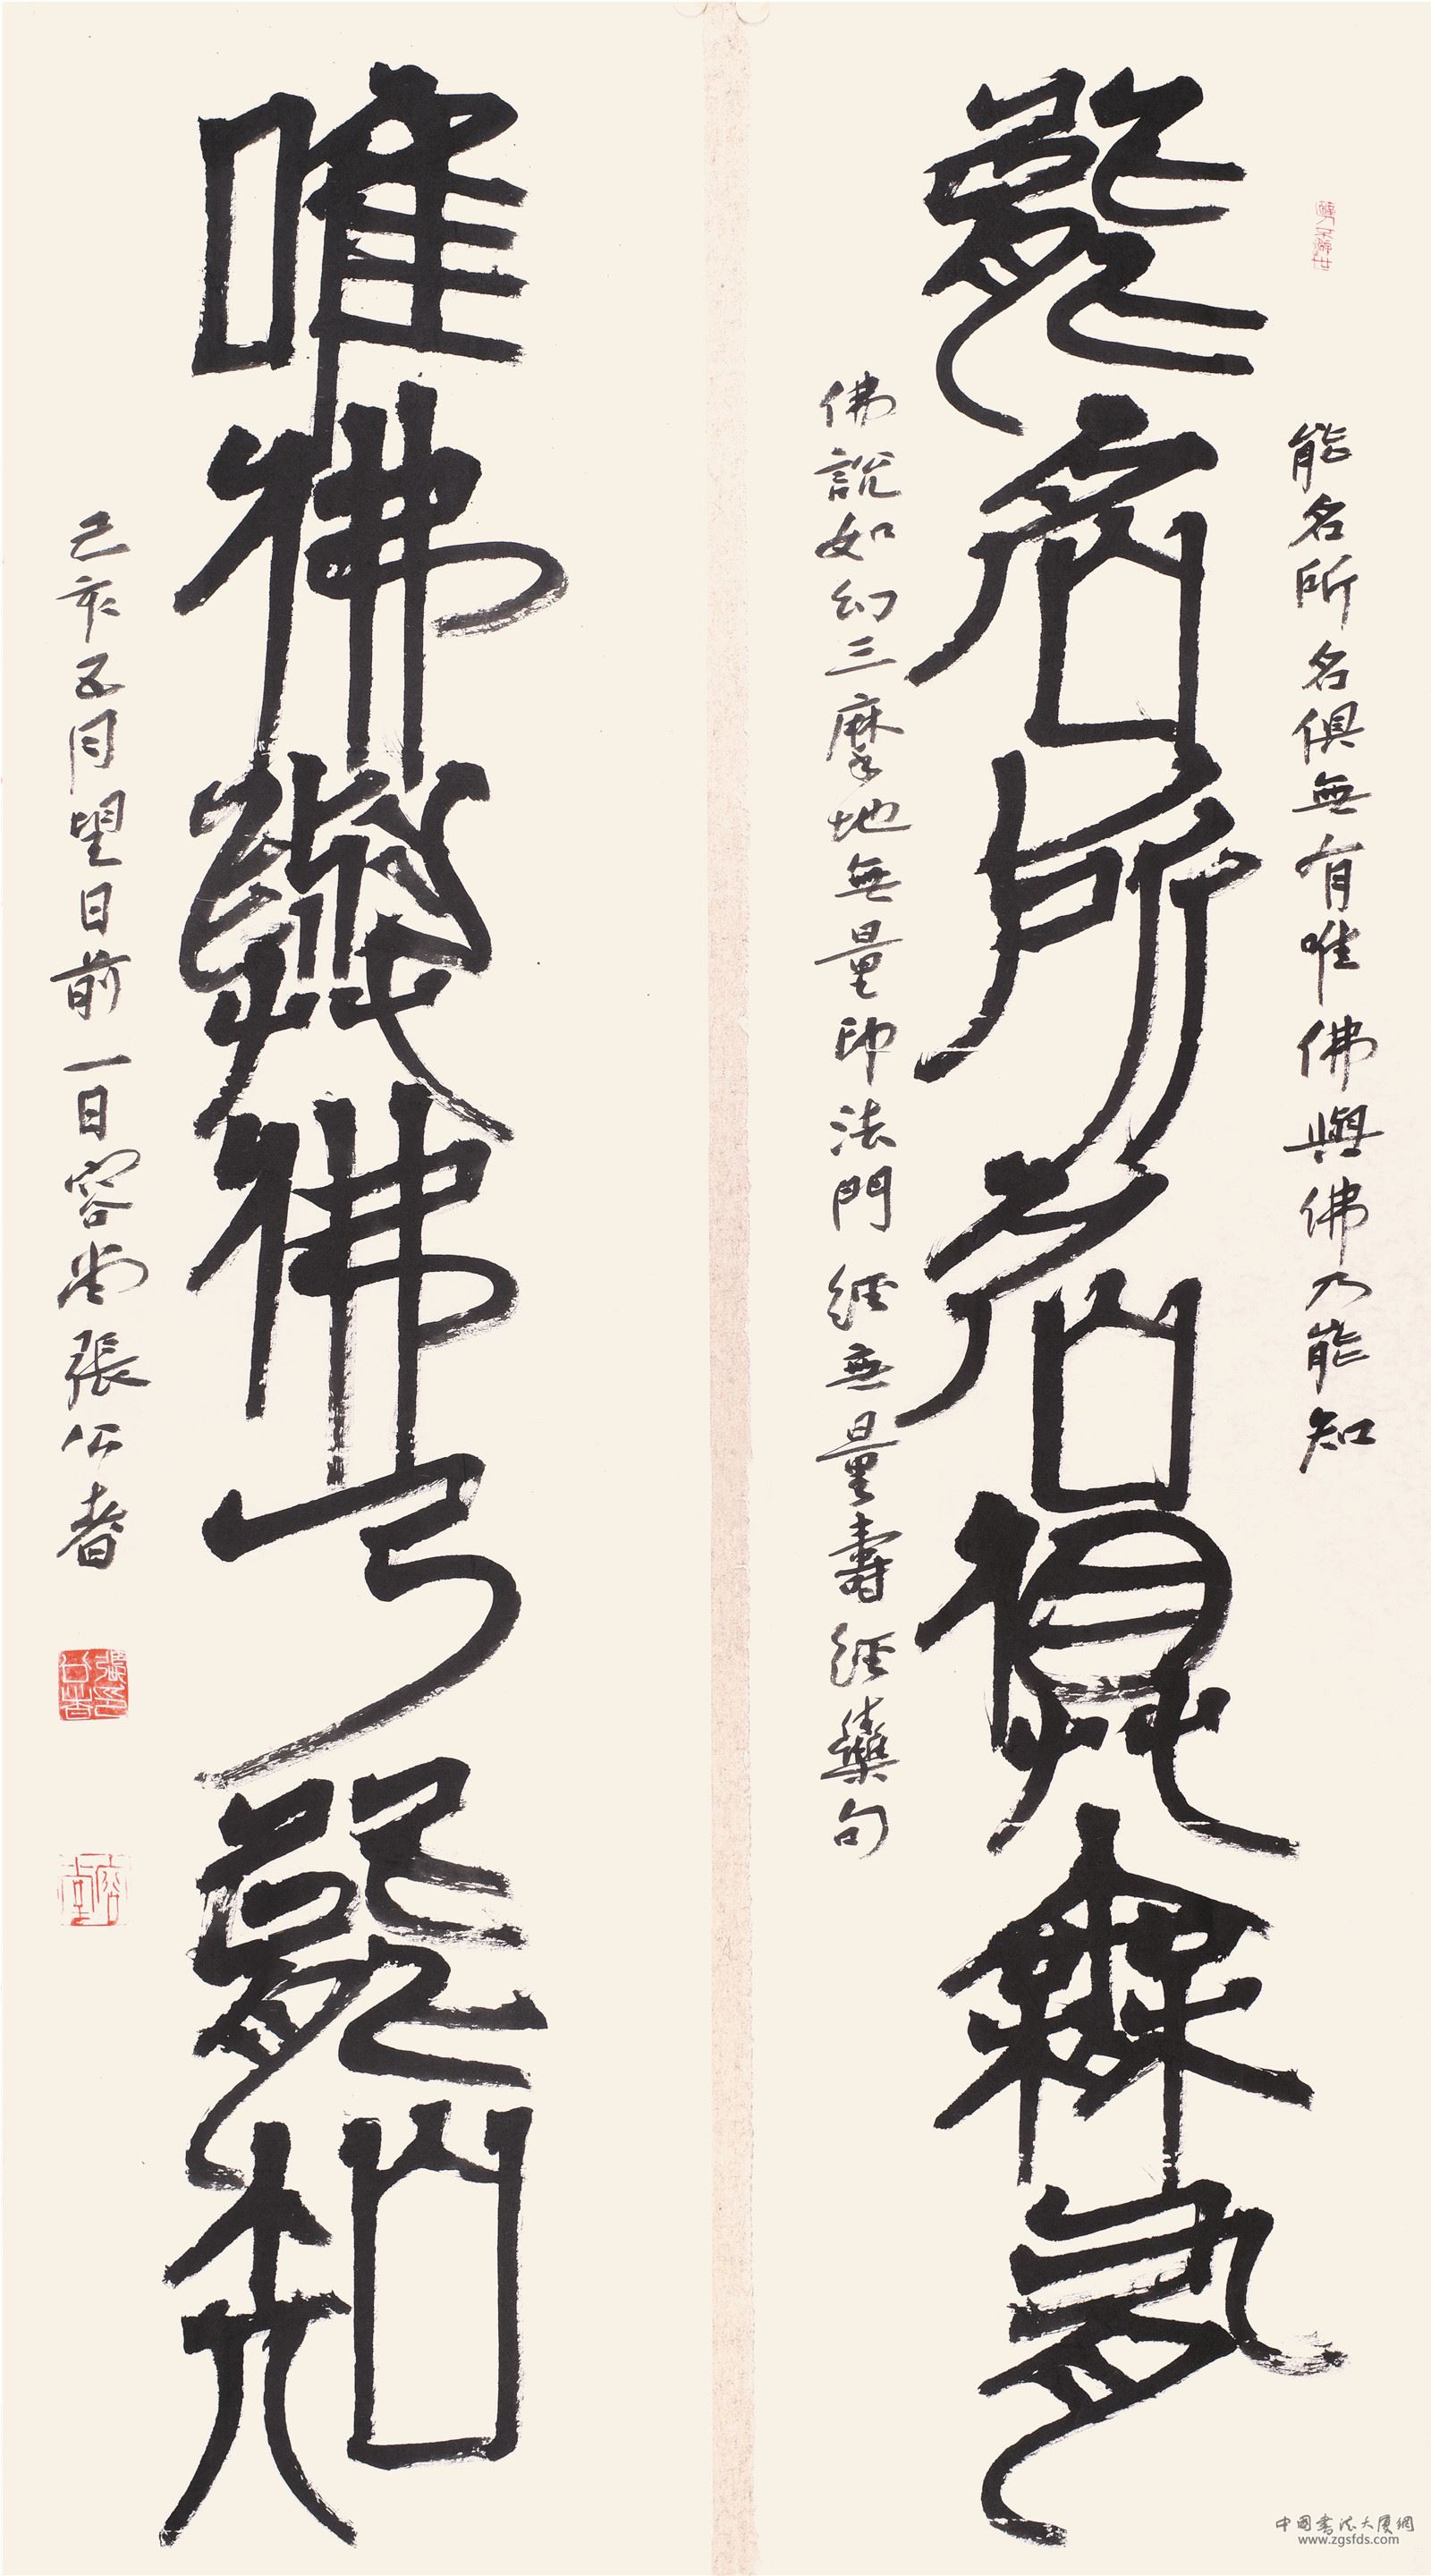 能名所名俱無有
能名所名俱無有唯佛與佛乃能知
佛說如幻三摩地無量印法門經無量壽經集句
唯佛與佛乃能知
己亥五月望日前一日容堂張公者
中國書法大廈網
www.zgsfds.com